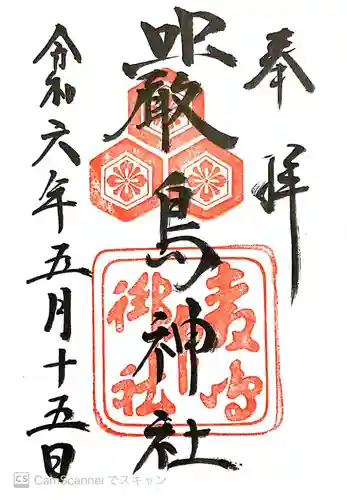 奉拝
嚴島神社
令和六年五月十五日
CS CamScanner でスキャン